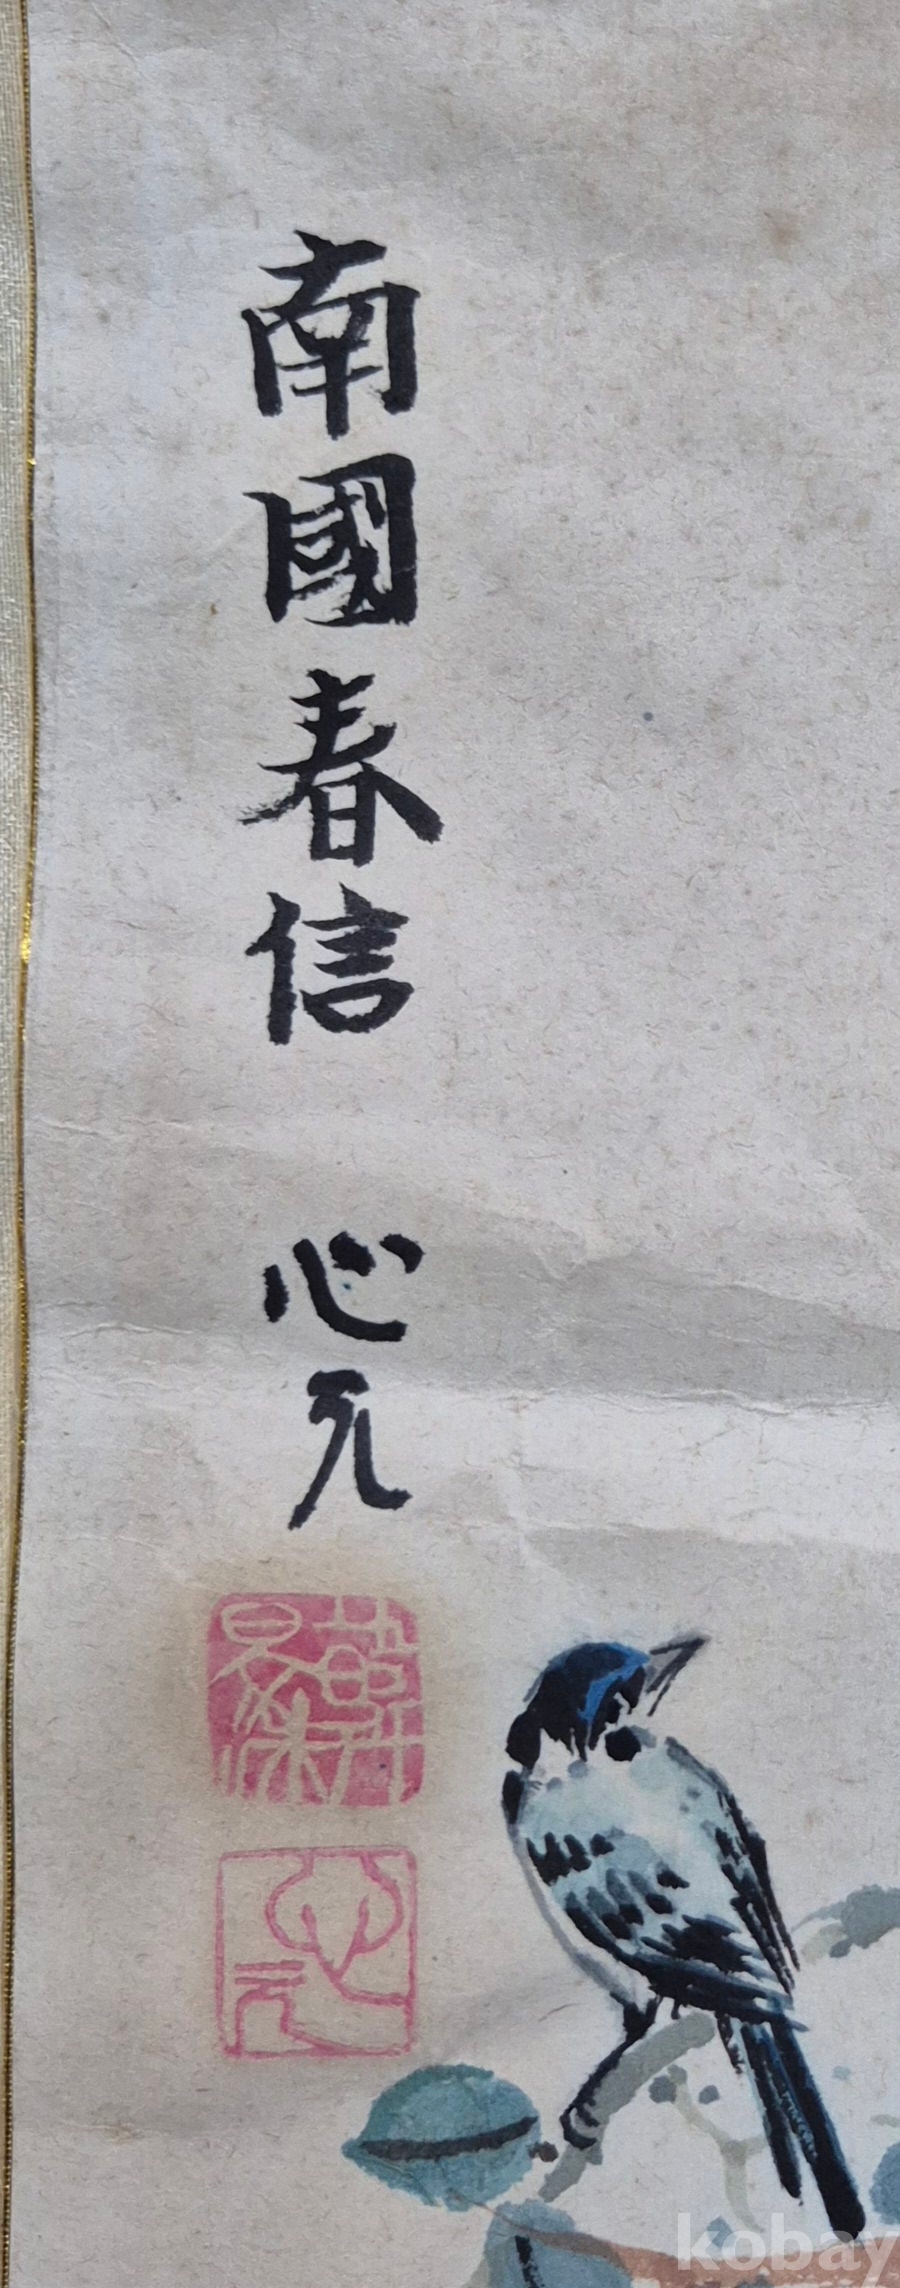 南國春信 心元
心元
kobay